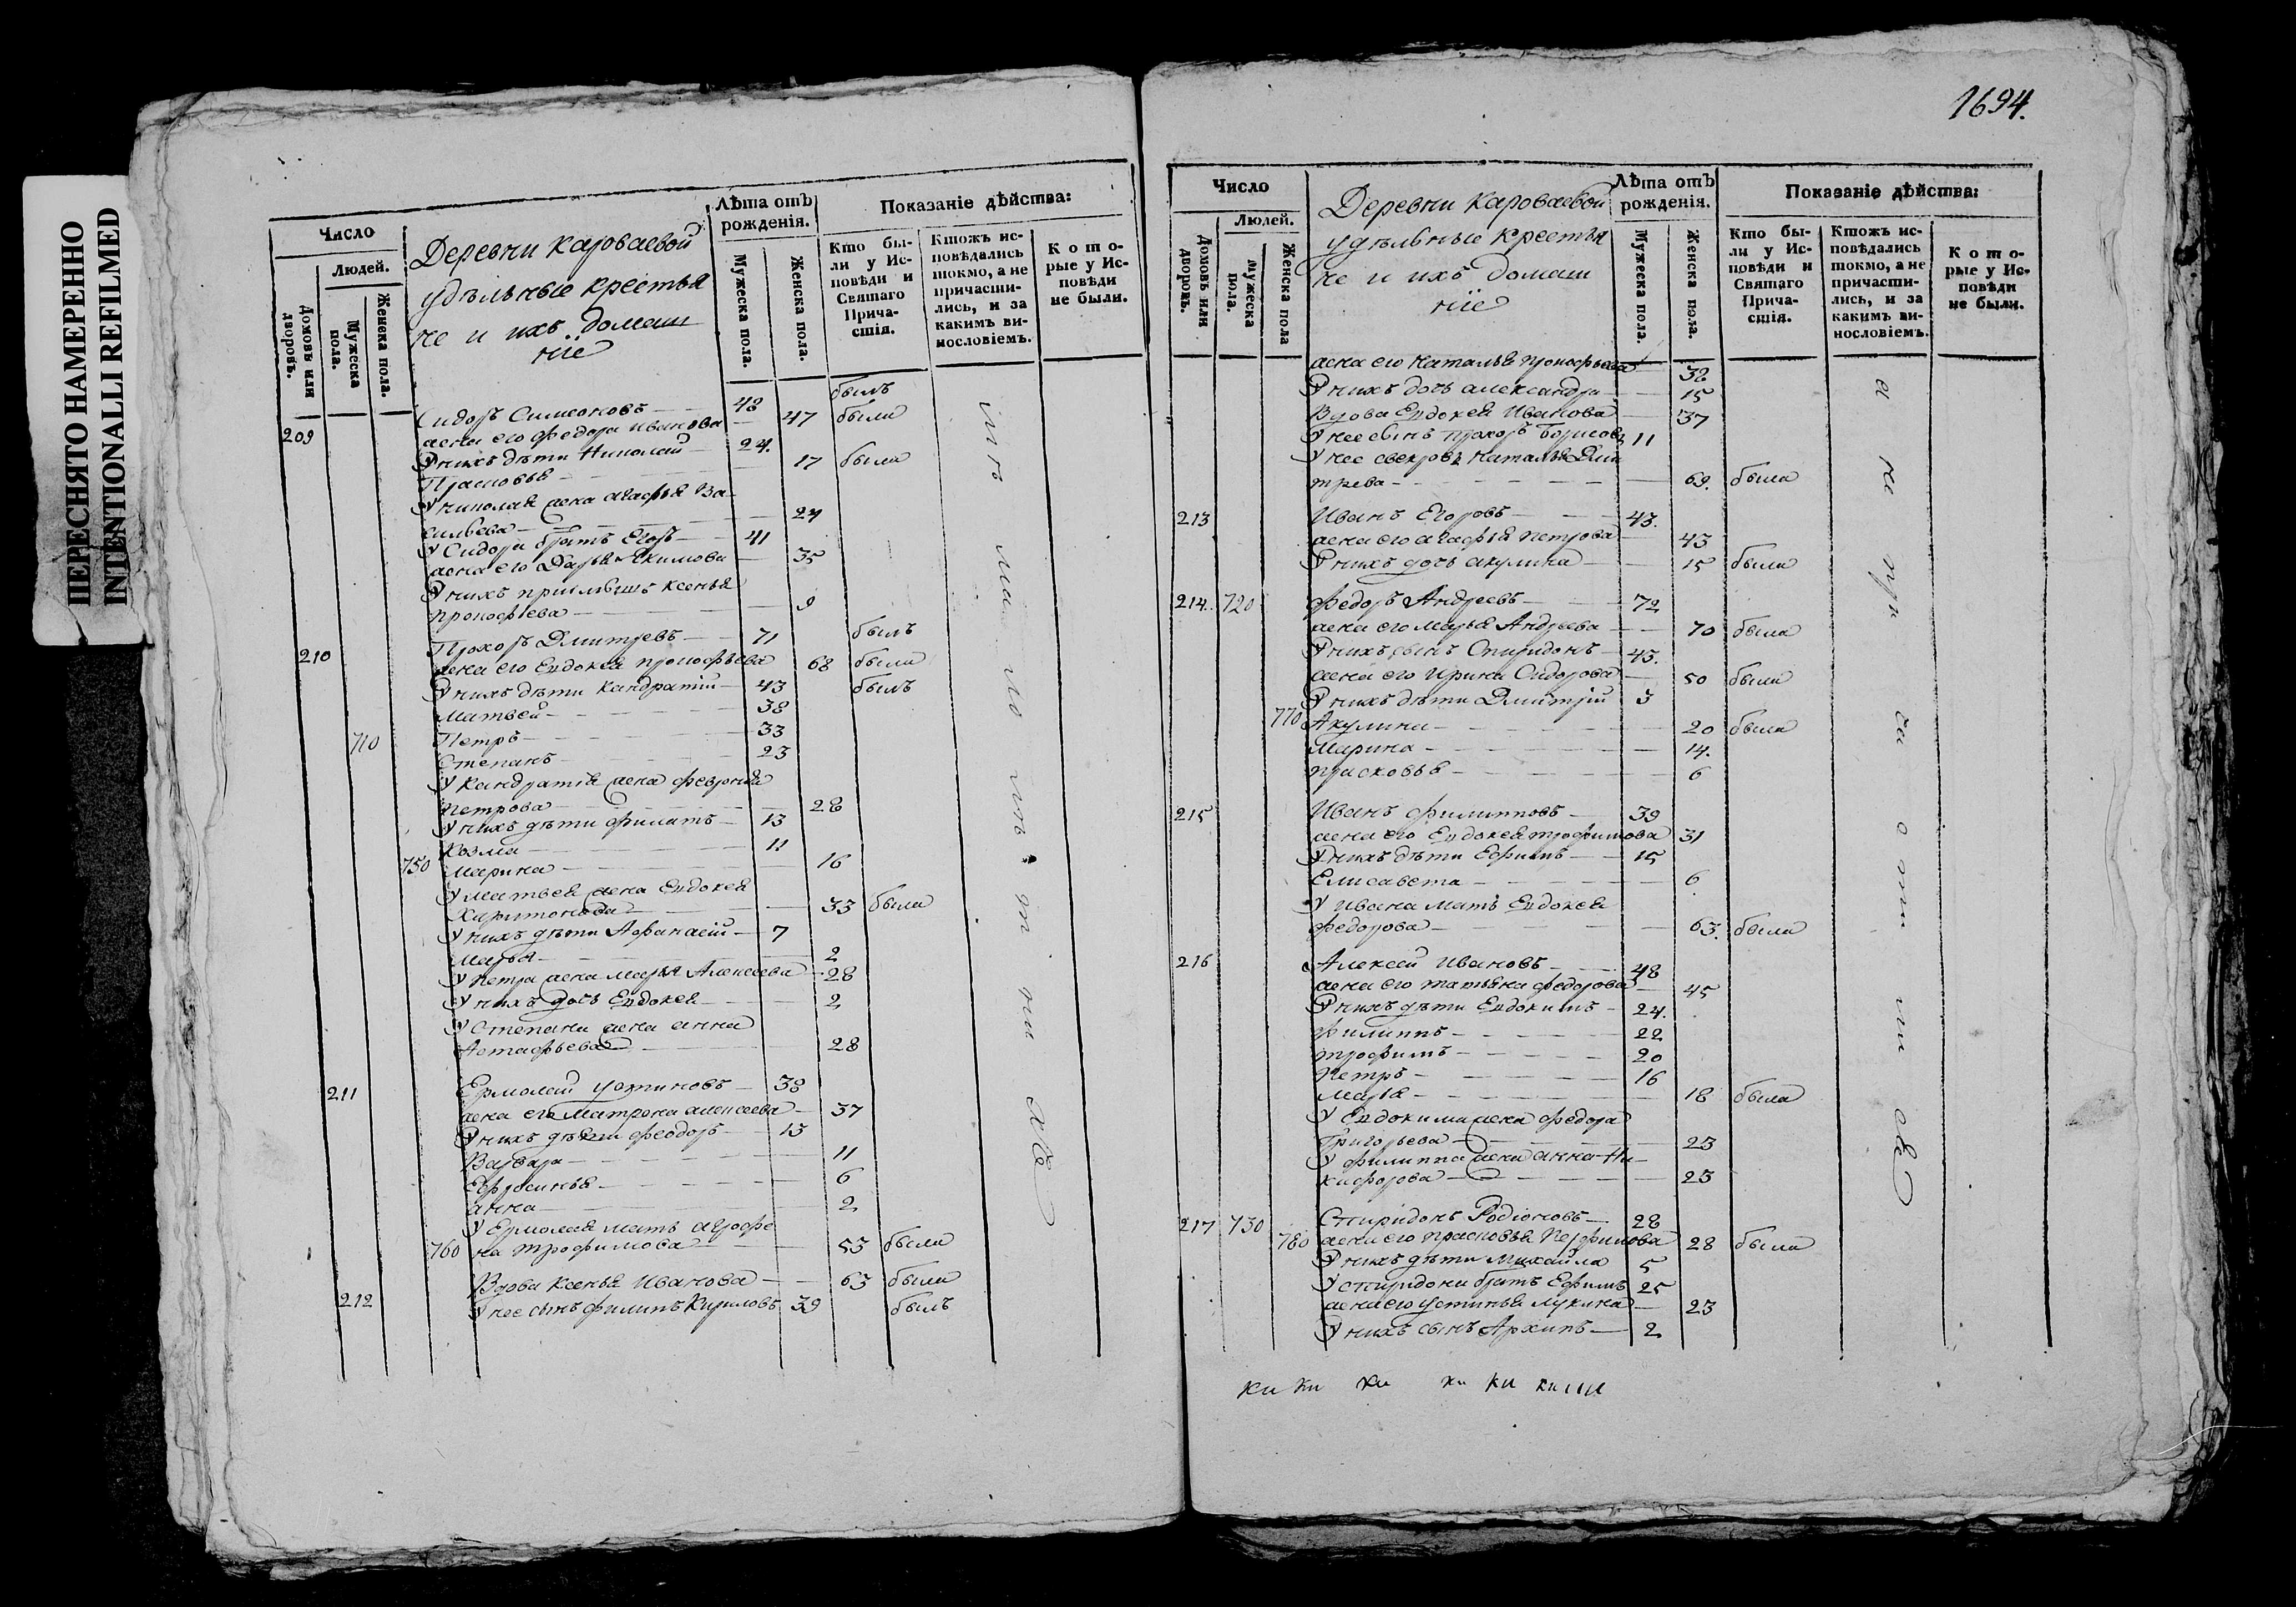 ПЕРЕСНЯТО НАМЕРЕННО
INTENTIONALLI REFILMED
Число
Людей.
Домовъ или дворовъ.
Мужеска пола.
Женска пола.
Деревни Кароваевой
удѣльные крестья
не и ихъ домаш
нїе
Лѣта отъ рожденія.
Мужеска пола.
Женска пола.
Показаніе дѣйства:
Кто бы-
ли у Ис-
повѣди и
Святаго
Прича-
стія.
Ктожъ ис-
повѣдались
токмо, а не
причасти-
лись, и за
какимъ ви-
нословіемъ.
Кото-
рые у Ис-
повѣди
не были.
209 Сидоръ Симеоновъ — 48 былъ
жена его Федора Иванова — 47 была
У нихъ дѣти Николай — 24.
Прасковья — 17 была
У Николая жена Агафья Ва-
сильева — 24
У Сидора братъ Егоръ — 41
жена его Дарья Якимова — 35
У нихъ приемышъ Ксенья
Прокофьева — 9
210 Прохоръ Дмитревъ — 71 былъ
жена его Евдокея Прокофьева 68 была
У нихъ дѣти Кандратій — 43 былъ
Матвей — 38
710 Петръ — 33
Степанъ — 23
У Кандратія жена Феврония
Петрова — 28
У нихъ дѣти Филатъ — 13
Козма — 11
750 Марина — 16
У Матвея жена Евдокея
Харитонова — 33 была
У нихъ дѣти Афанасій — 7
Марья — 2
У Петра жена Марья Алексеева — 28
У нихъ дочь Евдокея — 2
У Степана жена Анна
Астафьева — 28
211 Ермолай Устиновъ — 38
жена его Матрена Алексеева — 37
У нихъ дѣти Феодоръ — 13
Варвара — 11
Ефросинья — 6
Анна — 2
У Ермолая мать Агрофе
760 на Трофимова — 53 была
Вдова Ксенья Иванова — 63 была
212 У нее сынъ Филипъ Кириловъ 39 былъ
1694.
Число
Людей.
Домовъ или дворовъ.
Мужеска пола.
Женска пола
Деревни Кароваевой
удѣльные крестья
не и ихъ домаш
нїе
Лѣта отъ рожденія.
Мужеска пола.
Женска пола.
Показаніе дѣйства:
Кто бы-
ли у Ис-
повѣди и
Святаго
Прича-
стія.
Ктожъ ис-
повѣдались
токмо, а не
причасти-
лись, и за
какимъ ви-
нословіемъ.
Кото-
рые у Ис-
повѣди
не были.
жена его Наталья Прокофьева 38
У нихъ дочь Александра — 15
Вдова Евдокея Иванова — 37
У нее сынъ Прохоръ Борисовъ 11
У нее свекровь Наталья Дми
трева — 69. была
213 Иванъ Егоровъ — 43.
жена его Агафья Петрова — 43
У нихъ дочь Акулина — 15 была
214. 720 Федоръ Андреевъ — 72
жена его Марья Андреева — 70 была
У нихъ сынъ Спиридонъ — 45.
жена его Ирина Сидорова — 50 была
У нихъ дѣти Дмитрій 3
770 Акулина — 20 была
Марина — 14.
Прасковья — 6
215 Иванъ Филипповъ — 39
жена его Евдокея Трофимова 31
У нихъ дѣти Ефимъ — 15
Елисавета — 6
У Ивана мать Евдокея
Федорова — 63. была
216 Алексей Ивановъ — 48
жена его Татьяна Федорова — 45
У нихъ дѣти Евдокимъ — 24.
Филиппъ — 22
Трофимъ — 20
Петръ — 16
Марья — 18 была
У Евдокима жена Федора
Григорьева — 23
У Филиппа жена Анна Ни-
кифорова — 23
217 730 Спиридонъ Родіоновъ — 28
780 жена его Прасковья Перфилова 28 была
У нихъ дѣти Михайла 5
У Спиридона братъ Ефимъ 25
жена его Устинья Лукина — 23
У нихъ сынъ Архипъ — 2
ки ки ки ки ки